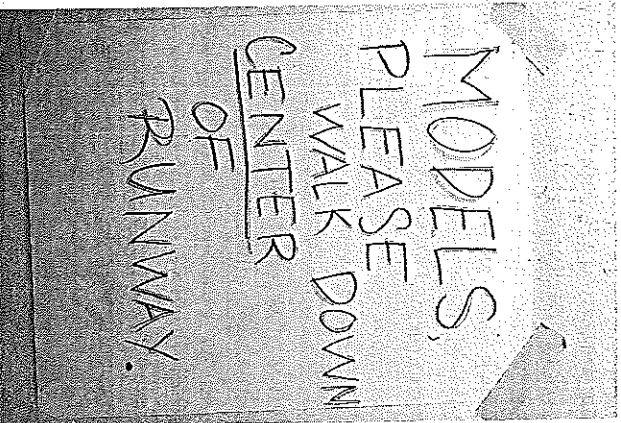 MODELS,
PLEASE
WALK DOWN
CENTER
OF
RUNWAY.